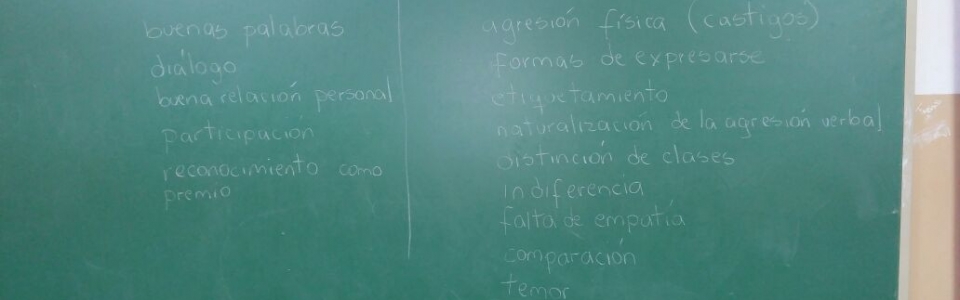 buenas palabras
diálogo
buena relación personal
participación
reconocimiento como
premio
agresión física (castigos)
formas de expresarse
etiquetamiento
naturalización de la agresión verbal
distinción de clases
indiferencia
falta de empatía
comparación
temor